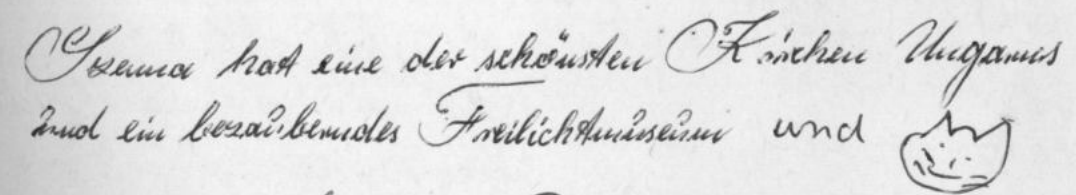 Szenna hat eine der schönsten Kirchen Ungarns
und ein bezauberndes Freilichtmuseum und